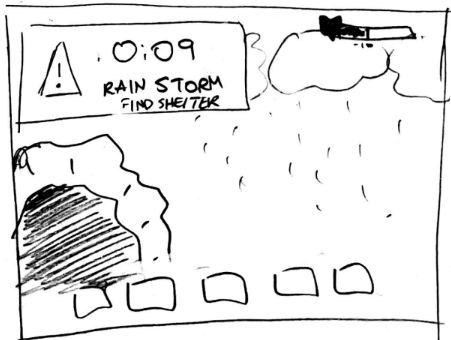 0:09
RAIN STORM
FIND SHELTER
-10